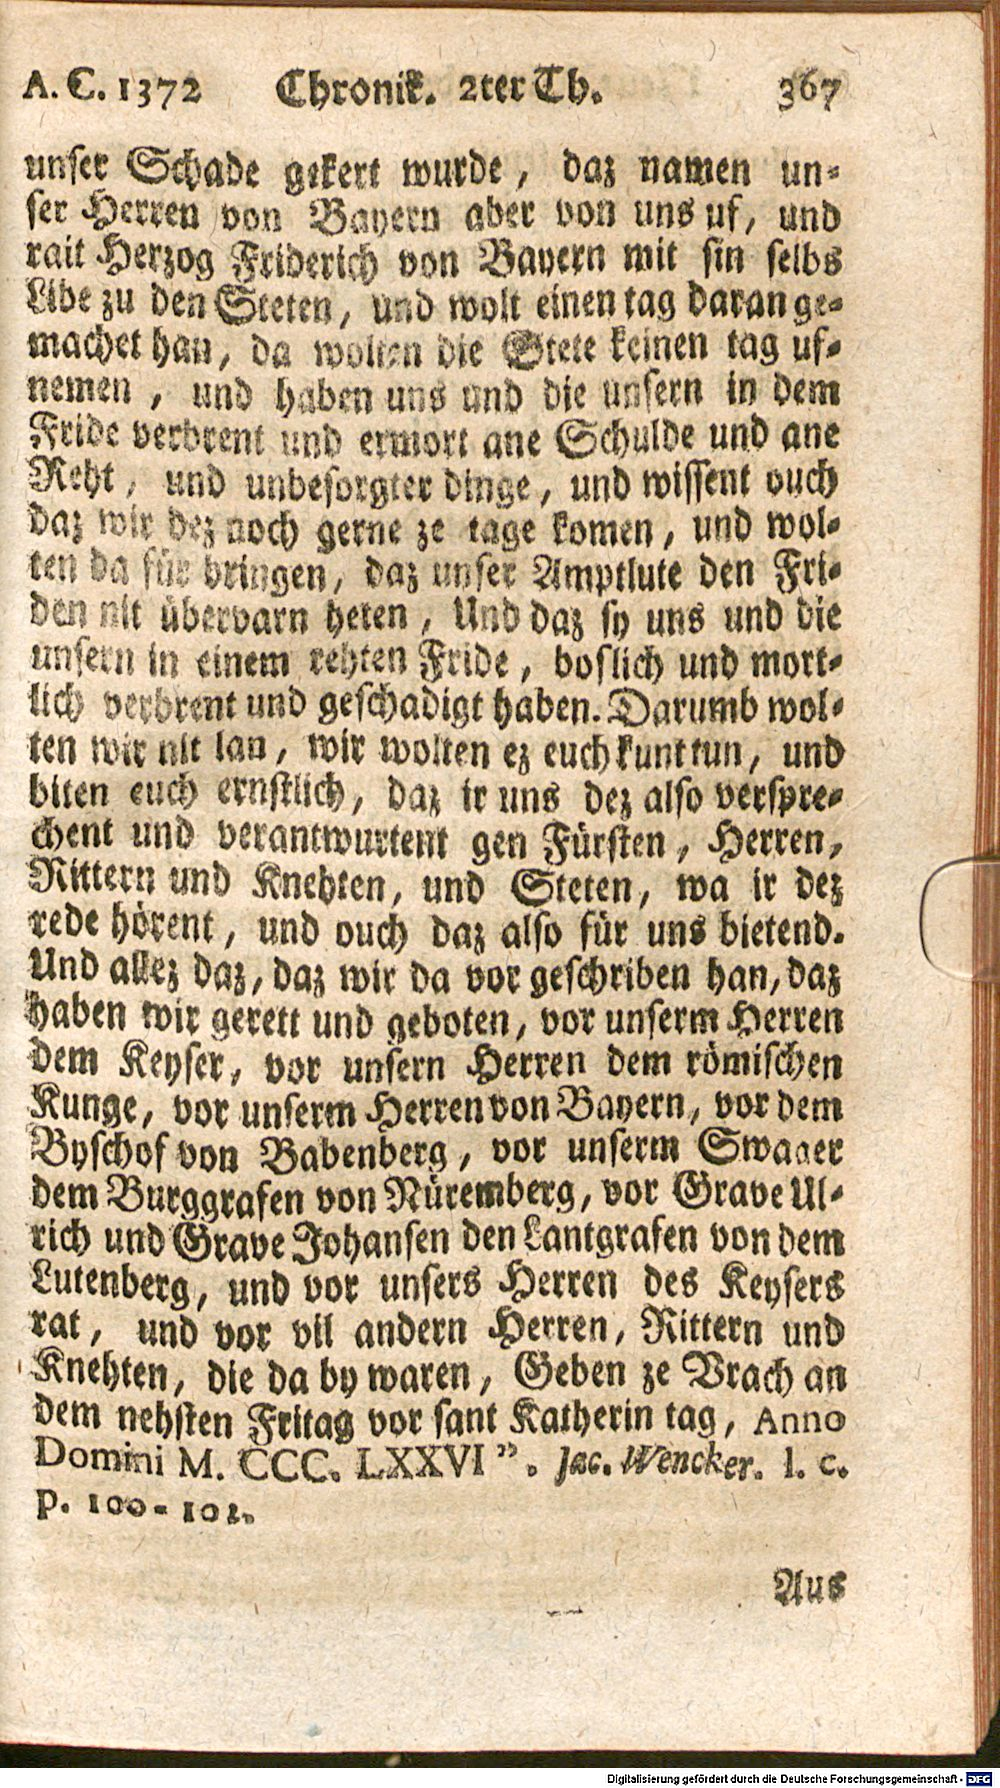 A. C. 1372 Chronik. 2ter Th. 367
unser Schade gekert wurde, daz namen un-
ser Herren von Bayern aber von uns uf, und
rait Herzog Friderich von Bayern mit sin selbs
Libe zu den Steten, und wolt einen tag daran ge-
machet han, da wolten die Stete keinen tag uf-
nemen, und haben uns und die unsern in dem
Fride verbrent und ermort ane Schulde und ane
Reht, und unbesorgter dinge, und wissent ouch
daz wir dez noch gerne ze tage komen, und wol-
ten da für bringen, daz unser Amptlute den Fri-
den nit übervarn heten, Und daz sy uns und die
unsern in einem rehten Fride, boslich und mort-
lich verbrent und geschadigt haben. Darumb wol-
ten wir nit lan, wir wolten ez euch kunt tun, und
biten euch ernstlich, daz ir uns dez also verspre-
chent und verantwurtent gen Fürsten, Herren,
Rittern und Knehten, und Steten, wa ir dez
rede hörent, und ouch daz also für uns bietend.
Und allez daz, daz wir da vor geschriben han, daz
haben wir gerett und geboten, vor unserm Herren
dem Keyser, vor unsern Herren dem römischen
Kunge, vor unserm Herren von Bayern, vor dem
Byschof von Babenberg, vor unserm Swager
dem Burggrafen von Nüremberg, vor Grave Ul-
rich und Grave Johansen den Lantgrafen von dem
Lutenberg, und vor unsers Herren des Keysers
rat, und vor vil andern Herren, Rittern und
Knehten, die da by waren, Geben ze Vrach an
dem nehsten Fritag vor sant Katherin tag, Anno
Domini M. CCC. LXXVI". Jac. Wencker. l. c.
p. 100-102.
Aus
Digitalisierung gefördert durch die Deutsche Forschungsgemeinschaft - DFG